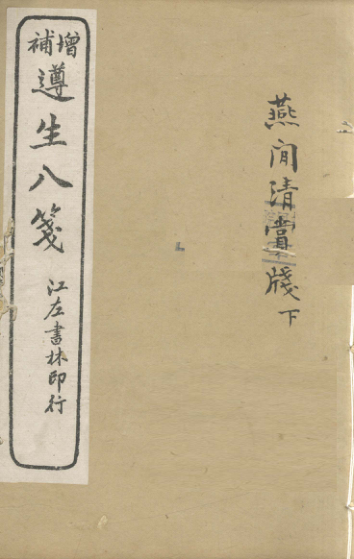 增補
遵生八箋
江左書林印行
燕閒清賞牋下